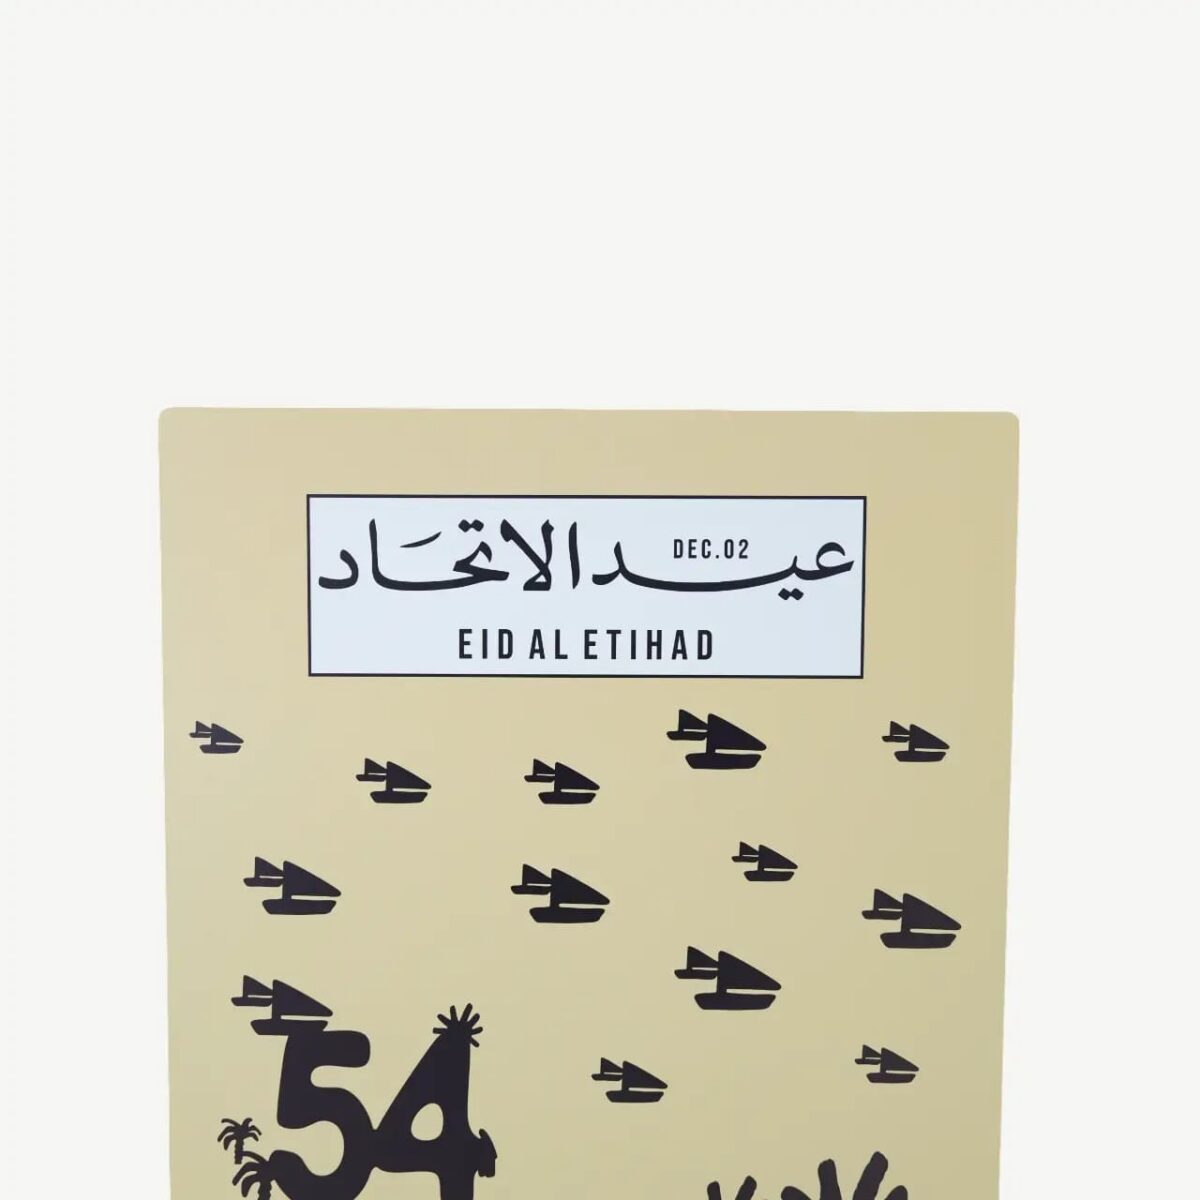 عيد الاتحَاد
DEC.02
EID AL ETIHAD
54